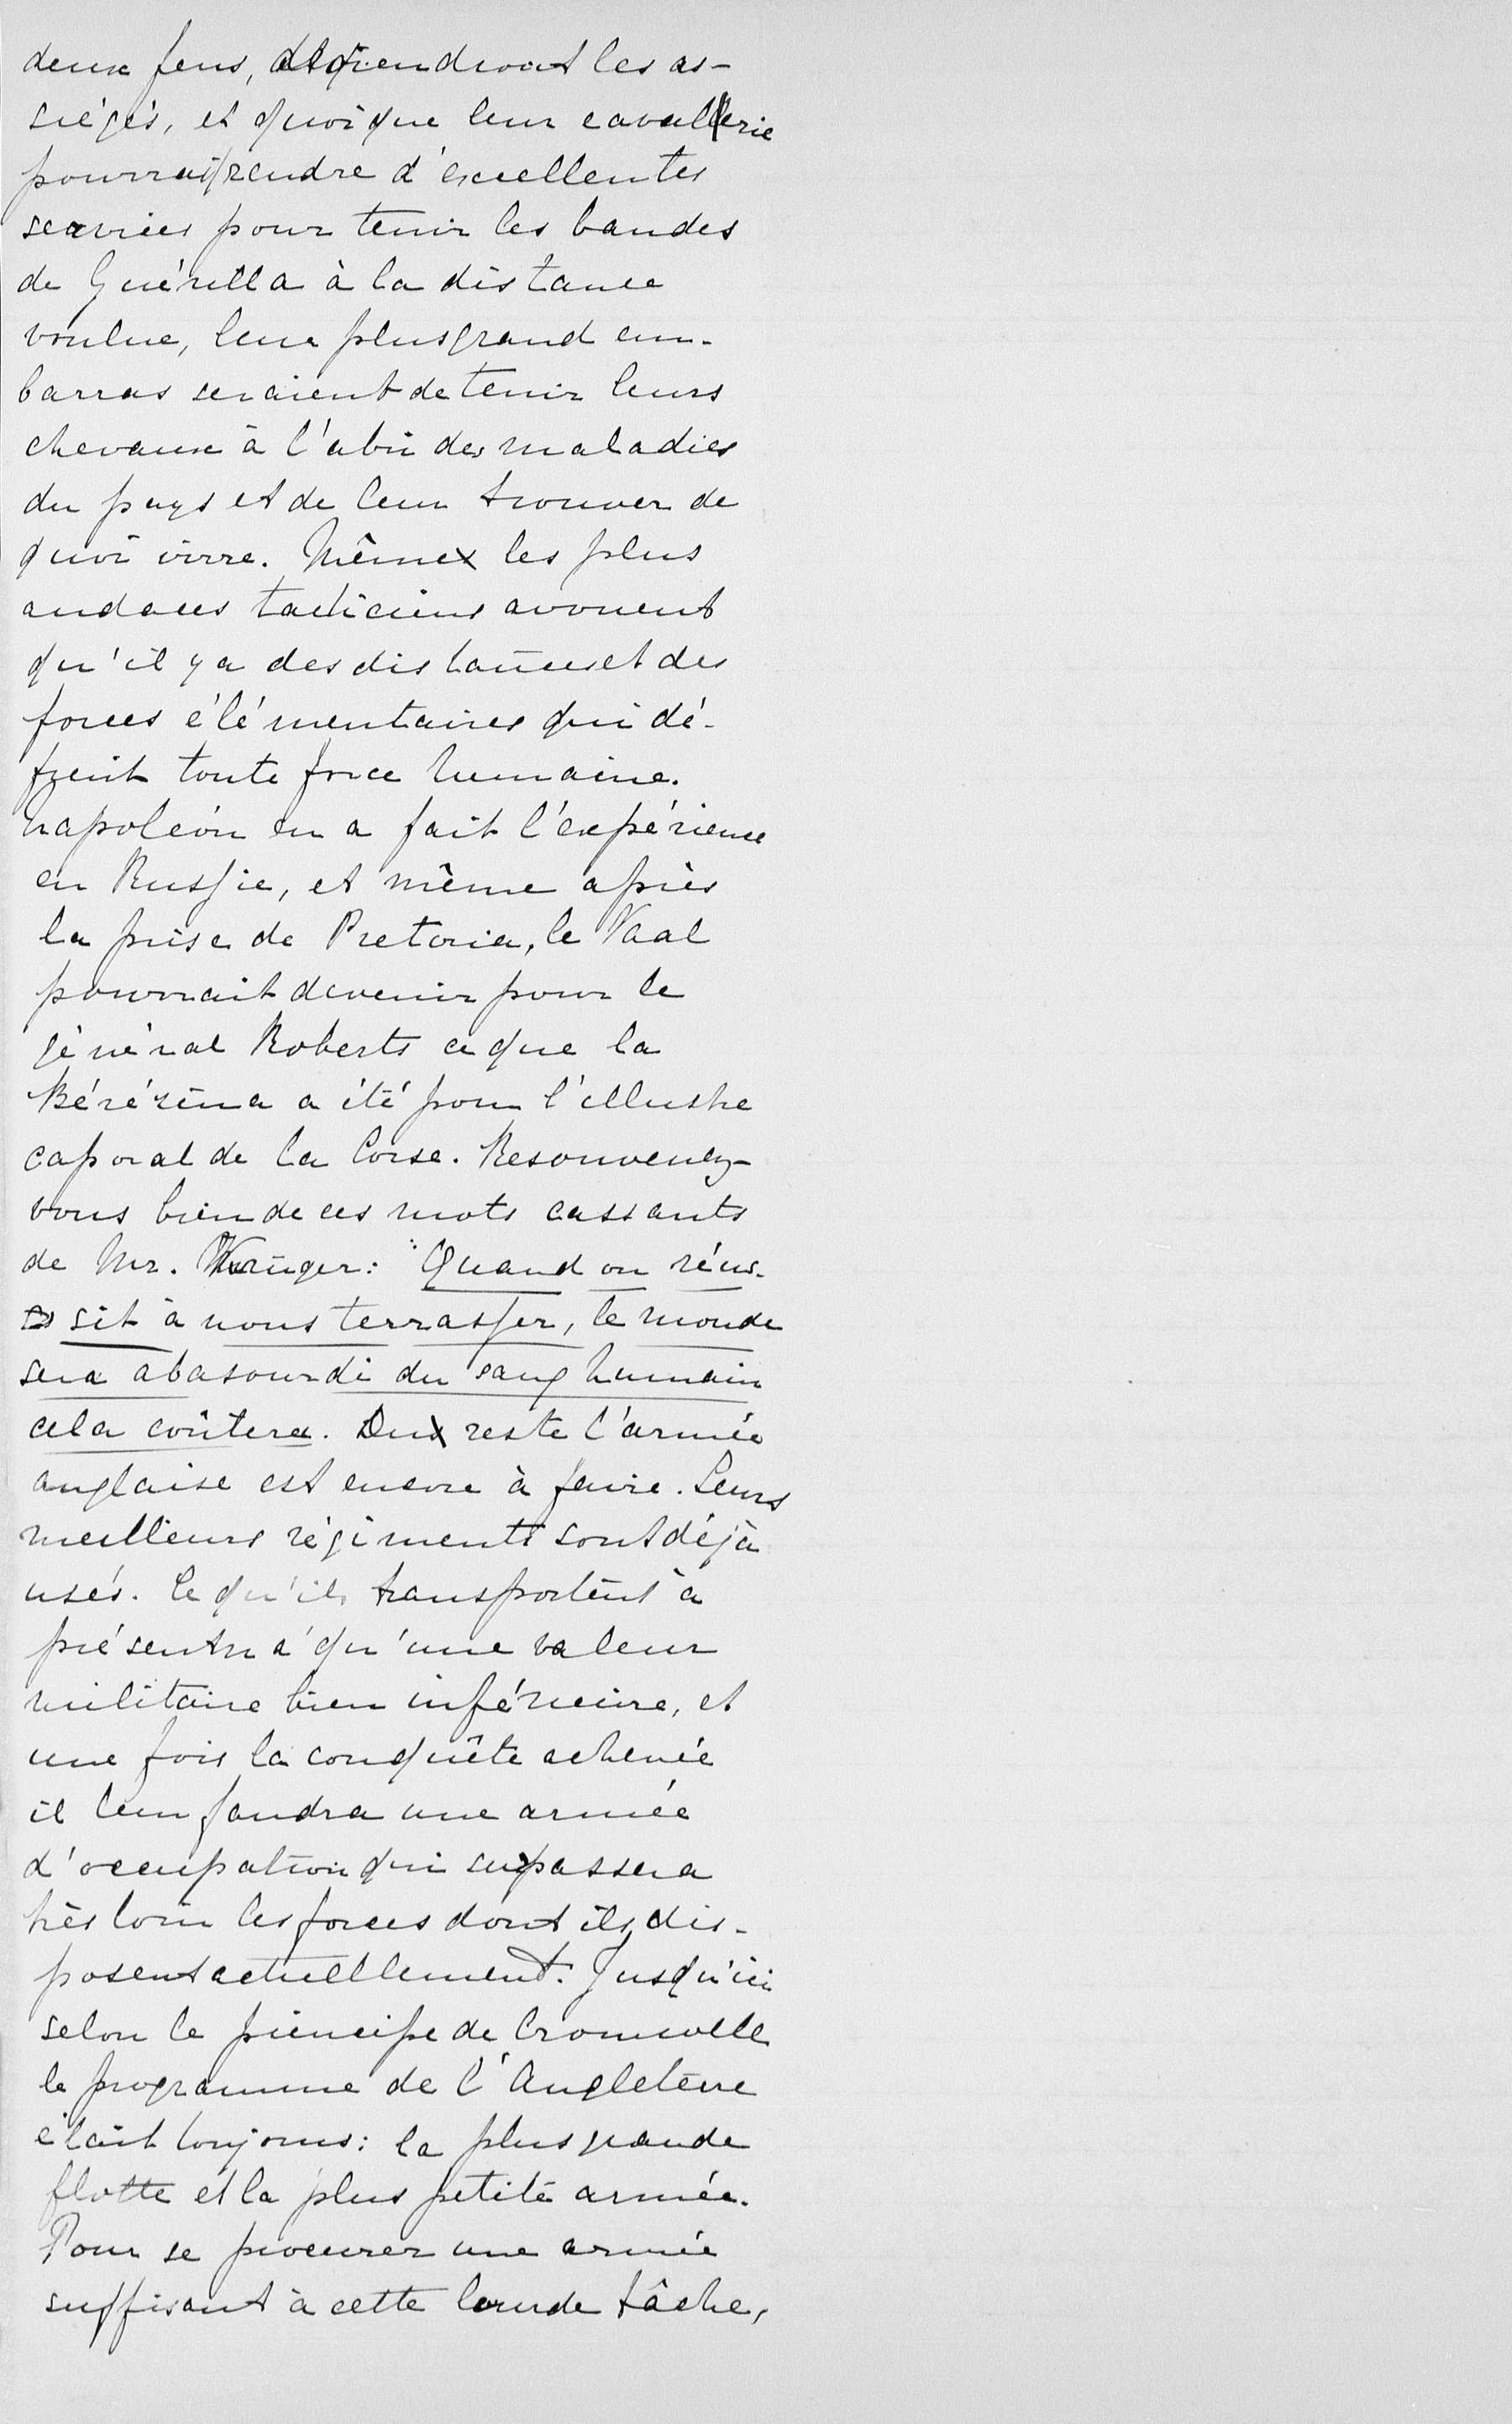 deux feus, les as-
siégés, et quoique leur cavallerie
pourrait rendre d'excellentes
services pour tenir les bandes
de Guérilla à la distance
voulue, leur plus grand em-
barras seraient de tenir leurs
chevaux à l'abri des maladies
du pays et de leur trouver de
quoi vivre. Même les plus
audaces tacticiens avouent
qu'il y a des distances et des
forces élémentaires qui dé-
fient toute force humaine.
Napoléon en a fait l'expérience
en Russie, et même après
la prise de Pretoria, le Vaal
pourrait devenir pour le
général Roberts ce que la
Bérésina a été pour l'illustre
caporal de la Corse. Resouvenez-
vous bien de ces mots cassants
de Mr. Krüger: "Quand on réus-
sit à nous terrasser, le monde
sera abasourdi du sang humain
cela coûtera. Du reste l'armée
anglaise est encore à faire. Leurs
meilleurs régiments sont déjà
usés. Ce qu'ils transportent à
présent n'a qu'une valeur
militaire bien inférieure, et
une fois la conquête achevée
il leur faudra une armée
d'occupation qui surpassera
très loin les forces dont ils dis-
posent actuellement. Jusqu'ici
selon le principe de Cromwell
le programme de l'Angleterre
était toujours: la plus grande
flotte et la plus petite armée.
Pour se procurer une armée
suffisant à cette lourde tâche,